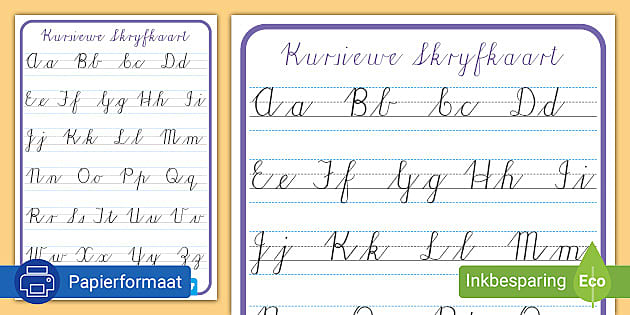 Kursiewe Skryfkaart
Aa Bb Cc Dd
Ee Ff Gg Hh Ii
Jj Kk Ll Mm
Nn Oo Pp Qq
Rr Ss Tt Uu Vv
Ww Xx Yy Zz
Papierformaat
Kursiewe Skryfkaart
Aa Bb Cc Dd
Ee Ff Gg Hh Ii
Jj Kk Ll Mm
Nn Oo Pp Qq
Inkbesparing Eco